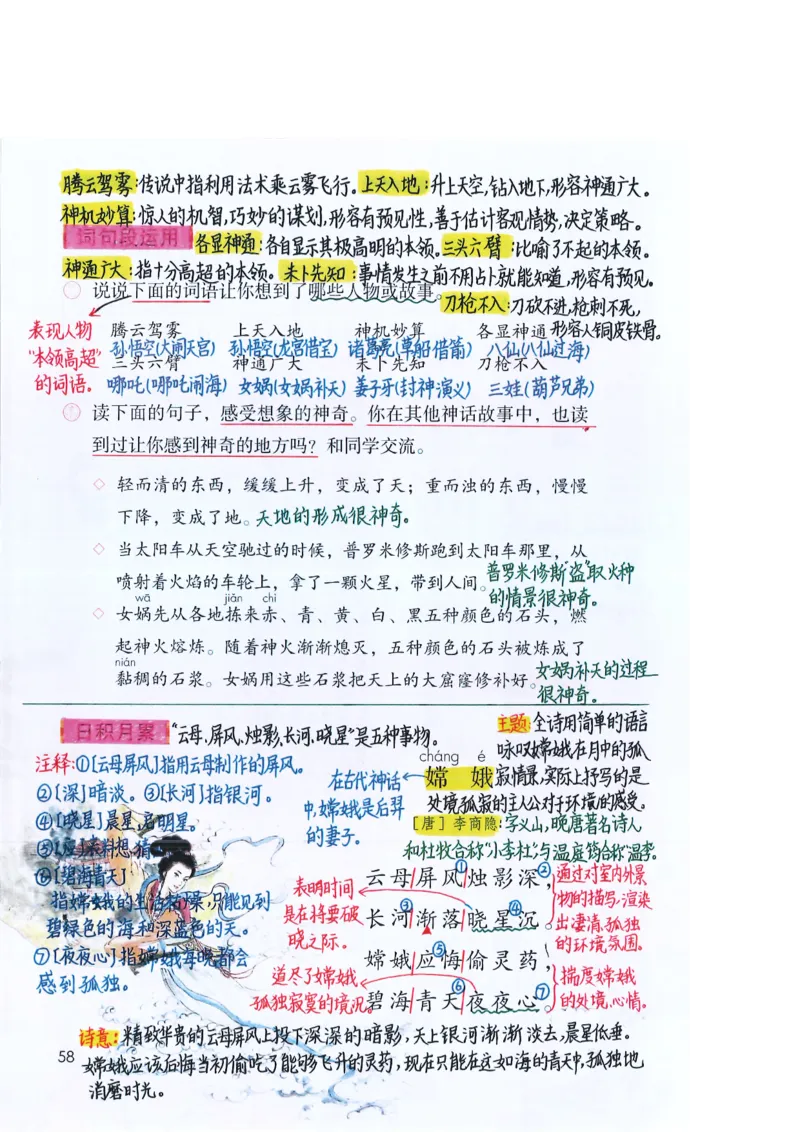 腾云驾雾:传说中指利用法术乘云雾飞行。上天入地:升上天空,钻入地下,形容神通广大。
神机妙算:惊人的机智,巧妙的谋划,形容有预见性,善于估计客观情势,决定策略。
词句段运用 各显神通:各自显示其极高明的本领。三头六臂:比喻了不起的本领。
神通广大:指十分高超的本领。未卜先知:事情发生之前不用占卜就能知道,形容有预见。
说说下面的词语让你想到了哪些人物或故事。
刀枪不入:刀砍不进,枪刺不死,
形容人铜皮铁骨。
表现人物
“本领高超”
的词语。
腾云驾雾 上天入地 神机妙算 各显神通
孙悟空(大闹天宫) 孙悟空(龙宫借宝) 诸葛亮(草船借箭) 八仙(八仙过海)
三头六臂 神通广大 未卜先知 刀枪不入
哪吒(哪吒闹海) 女娲(女娲补天) 姜子牙(封神演义) 三娃(葫芦兄弟)
读下面的句子,感受想象的神奇。你在其他神话故事中,也读
到过让你感到神奇的地方吗?和同学交流。
轻而清的东西,缓缓上升,变成了天;重而浊的东西,慢慢
下降,变成了地。天地的形成很神奇。
当太阳车从天空驰过的时候,普罗米修斯跑到太阳车那里,从
喷射着火焰的车轮上,拿了一颗火星,带到人间。
普罗米修斯“盗”取火种
的情景很神奇。
wā jiān chì
女娲先从各地拣来赤、青、黄、白、黑五种颜色的石头,燃
起神火熔炼。随着神火渐渐熄灭,五种颜色的石头被炼成了
nián
黏稠的石浆。女娲用这些石浆把天上的大窟窿修补好。
女娲补天的过程
很神奇。
日积月累 “云母、屏风、烛影、长河、晓星”是五种事物。
主题:全诗用简单的语言
咏叹嫦娥在月中的孤
寂情景,实际上抒写的是
处境孤寂的主人公对于环境的感受。
注释:①[云母屏风]指用云母制作的屏风。
②[深]暗淡。③[长河]指银河。
④[晓星]晨星,启明星。
⑥[碧海青天]
指嫦娥的生活枯燥,只能见到
碧绿色的海和深蓝色的天。
⑦[夜夜心]指嫦娥每晚都会
感到孤独。
在古代神话
中,嫦娥是后羿
的妻子。
cháng é
嫦娥
[唐]李商隐:字义山,晚唐著名诗人
和杜牧合称“小李杜”,与温庭筠合称“温李”。
云母屏风①烛影深②,
长河③渐落晓星④沉。
嫦娥应⑤悔偷灵药,
碧海青天⑥夜夜心⑦。
表明时间
是在将要破
晓之际。
道尽了嫦娥
孤独寂寞的境况。
通过对室内外景
物的描写,渲染
出凄清、孤独
的环境氛围。
揣度嫦娥
的处境、心情。
诗意:精致华贵的云母屏风上投下深深的暗影,天上银河渐渐淡去,晨星低垂。
嫦娥应该后悔当初偷吃了能够飞升的灵药,现在只能在这如海的青天中,孤独地
消磨时光。
58